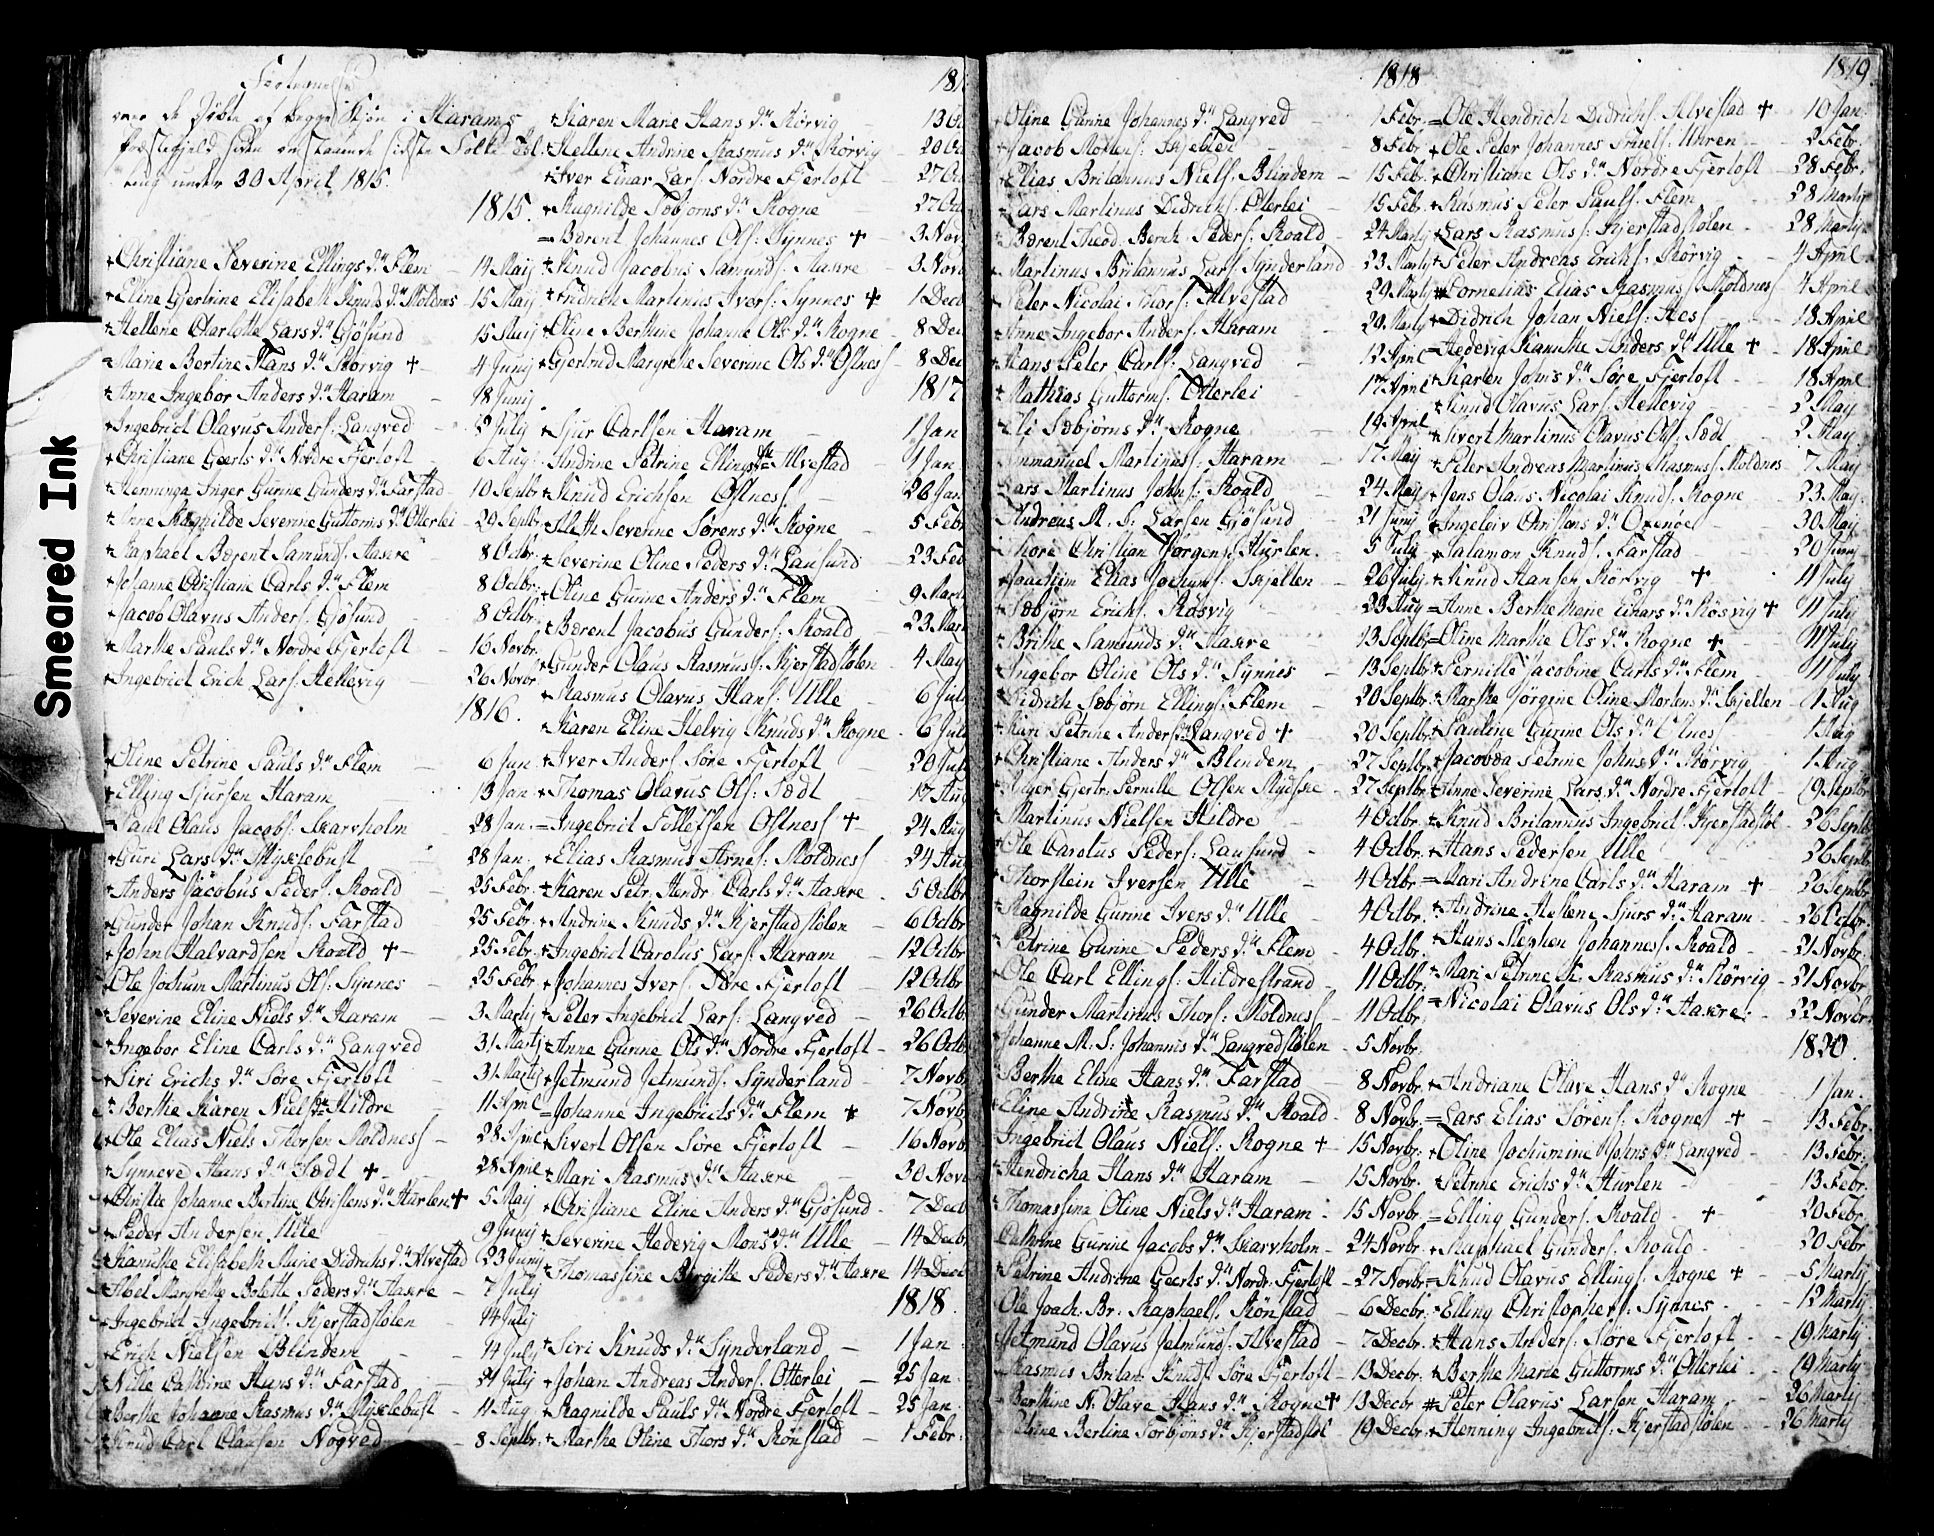 Smeared Ink
Fortegnelse
over de Døbte af begge Kjøn i Harams
Præstegjeld siden
under 30 April 1815.
1815.
Christiane Severine Ellings dr Flem - 14 Maij
Eline Gjertrine Elisabeth Knuds dr Moldnes - 15 Maij
Hellene Charlotte Lars dr Gjøsund 15 Maij
Marie Bertine Hans dr Rørvig + 4 Junij
Anne Ingebor Anders dr Haram - 18 Junij
Ingebrict Olavus Anders: Langved - 2 July
Christiane Geerts dr Nordre Fjertoft - 6 Aug:
Henninga Inger Gurine Gunders dr Farstad - 10 Septbr
Anne Ragnilde Severine Guttorms dr Otterlei - 29 Septbr
Raphael Bærent Samunds: Aakre 8 Octbr:
Johanne Christiane Carls dr Flem 8 Octbr:
Jacob Olavus Anders: Gjøsund - 8 Octbr.
Marthe Pauls dr Nordre Fjertoft - 16 Novbr.
Ingebrict Erich Lars: Hellevig - 26 Novbr
1816.
Oline Petrine Pauls dr Flem - 6 Jan.
Elling Sjursen Haram 13 Jan
Paul Olaus Jacobs: Skarvholm - 28 Jan.
Guri Lars dr Myklebust - 28 Jan.
Anders Jacobus Peders: Roald - 25 Febr.
Gunder Johan Knuds: Farstad 25 Febr.
John Halvardsen Roald + - 25 Febr.
Ole Jochum Martinus Ols: Synnes - 25 Febr
Severine Eline Niels dr Haram - 3 Martij
Ingebor Eline Carls dr Langved 31 Martij
Siri Erichs dr Søre Fjertoft - 31 Martij
Berthe Karen Niels dr Hildre - 11 April
Ole Elias Niels Thorsen Moldness - 28 April
Synneve Hans dr Sædt + - 28 April
Christie Johanne Bertine Christens dr Hurlen + 5 Maij
Peder Andersen Ulle 9 Junij
Kanutte Elisabeth Marie Didrichs dr Alvestad 23 Junij
Abel Margrethe Bolette Peders dr Aakre - 7 Julij
Ingebrict Ingebricts: Kjerstadstølen - 14 Julij
Erich Nielsen Blindem - 14 Julij
Nille Cathrine Hans dr Farstad 21 Julij
Berthe Johanne Rasmus dr Myklebust - 11 Aug
Knud Carl Olausen Nogved - 8 Septbr.
Karen Marie Hans dr Rørvig -
Hellene Andrine Rasmus dr Rørvig -
Iver Einar Lars: Nordre Fjertoft -
Ragnilde Sæbjørns dr Rogne -
Bærent Johannes Ols: Synnes +
Knud Jacobus Samunds: Aakre -
Fridrich Martinus Ivers: Synnes +
Oline Berthine Johanne Ols dr Rogne -
Gjertrud Margrethe Severine Ols dr Ostness
1817
Sjur Carlsen Haram - 1 Jan
Andrine Petrine Ellings dr Alvestad - 1 Jan
Knud Erichsen Ostness - 26 Jan
Aleth Severine Sørens dr Rogne - 5 Febr
Severine Oline Peders dr Lausund - 23 Feb
Oline Gurine Anders dr Flem 9 Mart
Bærent Jacobus Gunders: Roald - 23 Mart
Gunder Olaus Rasmuss: Kjerstadstølen - 4 May
Rasmus Olavus Hans: Ulle - 6 Jul
Karen Eline Helvig Knuds dr Rogne - 6 Jul
Iver Anders: Søre Fjertoft - 20 Jul
Thomas Olavus Ols: Sædt - 17 Aug
Ingebrict Tollefsen Ostness + - 24 Aug
Elias Rasmus Arnes: Moldness - 24 Au
Karen Petr. Hendr. Carls dr Aakre - 5 Octbr
Andrine Knuds dr Kjerstadstølen - 6 Octbr
Ingebrict Carolus Lars: Haram - 12 Octbr
Johannes Ivers: Søre Fjertoft - 12 Octbr
Peter Ingebrict Lars: Langved - 26 Octb
Anne Gurine Ols dr Nordre Fjertoft - 26 Octb
Jetmund Jetmunds: Synderland - 7 Novb
Johanne Ingebricts dr Flem + 7 Novb
Sivert Olsen Søre Fjertoft - 16 Novb
Mari Rasmus dr Aakre - 30 Nov
Christiane Eline Anders dr Gjøsund - 7 Decb
Severine Hedevig Mons dr Ulle - 14 Decb
Thomassine Birgitte Peders dr Aakre 14 Dec
1818.
Siri Knuds dr Synderland - 1 Jan
Johan Andreas Anders: Otterlei - 25 Jan.
Ragnilde Pauls dr Nordre Fjertoft - 25 Jan
Marthe Oline Thors dr Rønstad - 1 Febr:
1818
Oline Gurine Johannes dr Langved - 1 Febr.
Jacob Mortens: Skjelten - 8 Febr
Elias Britannus Niels: Blindem - 15 Feb.
Lars Martinus Didrichs: Otterlei - 15 Feb.
Bærent Theod. Bernt Peders: Roald - 24 Martij
Martinus Britannus Lars: Synderland - 23 Martij
Peter Nicolai Thors: Alvestad 29 Martij
Anne Ingebor Anders: Haram - 29 Martij
Hans Peter Carls: Langved - 12 April
Mathias Guttorms: Otterlei - 17 April
Eli Sæbjørns dr Rogne - 19 April
Emmanuel Martinuss: Haram - 17 Maij
Lars Martinus Johns: Roald - 24 Maij
Andreas M. S: Larsen Gjøsund 21 Junij
Thore Christian Jørgens: Hurlen. - 5 July
Joachim Elias Jochums: Skjelten - 26 July
Sæbjørn Erichs: Røsvig - 23 Aug
Brithe Samunds dr Aakre - 13 Septbr
Ingebor Oline Ols dr Synnes - 13 Septbr
Didrich Sæbjørn Ellings: Flem - 20 Septbr
Kari Petrine Anders dr Langved + - 20 Septbr.
Christiane Anders dr Blindem - 27 Septbr
Inger Gjertr: Pernille Olsen - 27 Septbr
Martinus Nielsen Hildre - 4 Octbr
Ole Carolus Peders: Lausund - 4 Octbr.
Thorstein Iversen Ulle - 4 Octbr
Ragnilde Gurine Ivers dr Ulle - 4 Octbr.
Petrine Gurine Peders dr Flem - 4 Octbr.
Ole Carl Ellings: Hildrestrand - 11 Octbr:
Gunder Martinus Thors: Moldness - 11 Octbr
Johanne M. S: Johannis dr Langvedstølen - 5 Novbr.
Berthe Eline Hans dr Farstad - 8 Novbr.
Eline Andrine Rasmus dr Roald - 8 Novbr.
Ingebrict Olaus Niels: Rogne + - 15 Novbr:
Hendricha Hans dr Haram - 15 Novbr.
Thomassine Oline Niels dr Haram - 15 Novbr.
Cathrine Gurine Jacobs dr Skarvholm - 24 Novbr.
Petrine Andrine Geerts dr Nord: Fjertoft - 27 Novbr
Ole Joach. Br: Raphaels: Rønstad - 6 Decbr.
Jetmund Olavus Jetmunds: Alvestad - 7 Decbr.
Rasmus Britan: Knuds: Søre Fjertoft - 13 Decbr.
Berthine N. Olave Hans dr Rogne + 13 Decbr
Petrine Berline Torbjøns dr Kjerstadstøl 19 Decbr
1819
Ole Hendrich Didrichs: Alvestad + 10 Jan:
Ole Peter Johannes Uhren - 2 Febr.
Christiane Ols dr Nordre Fjertoft - 28 Febr.
Rasmus Peter Pauls: Flem - 28 Martij
Lars Rasmuss: Kjerstadstølen - 28 Martij
Peter Andreas Erichs: Rørvig - 4 April
Cornelius Elias Rasmus: Moldness 4 April
Didrich Johan Niels: Ness - 18 April
Hedevig Kanutte Anders dr Ulle + - 18 April
Karen Johns dr Søre Fjertoft - 18 April
Knud Olavus Lars: Hellevig - 2 May
Sivert Martinus Olavus Ols: Sædt - 2 May
Peter Andreas Martinus Rasmus: Moldnes - 7 May
Jens Olaus Nicolai Knuds: Rogne - 23 May
Ingeleiv Christens dr Oxenøe - 30 Maij
Salamon Knuds: Farstad - 20 Junij
Knud Hansen Rørvig + 11 July
Anne Berthe Marie Einars dr Røsvig + 11 July
Oline Marthe Ols dr Rogne + 11 July
Pernille Jacobine Carls dr Flem - 11 July
Marthe Jørgine Oline Mortens dr Skjelten - 1 Aug
Pauline Gurine Ols dr Ostness 1 Aug
Jacobæa Petrine Johns dr Rørvig - 1 Aug
Anne Severine Lars dr Nordre Fjertoft - 19 Septbr
Knud Britannus Ingebrict: Kjerstadstøl - 26 Septb
Hans Pedersen Ulle 26 Septb
Mari Andrine Carls dr Haram + 26 Septbr
Andrine Hellene Sjurs dr Haram - 26 Octbr.
Hans Stephen Johanness: Roald - 21 Novbr.
Mari Petrine K. Rasmus dr Rørvig - 21 Novbr
Nicolai Olavus Ols dr Aakre: - 22 Novbr
1820.
Andriane Olave Hans dr Rogne 1 Jan.
Lars Elias Sørens: Rogne + - 13 Febr
Oline Jochumine Johns dr Langved - 13 Febr.
Petrine Erichs dr Hurlen - 13 Febr.
Elling Gunders: Roald + - 20 Febr.
Raphael Gunders: Roald - 20 Febr
Knud Olavus Ellings: Rogne + - 5 Martij
Elling Christophers: Synnes - 12 Martij
Hans Anders: Søre Fjertoft - 19 Martij
Berthe Marie Guttorms dr Otterlei - 19 Martij
Peter Olavus Larsen Haram - 26 Martij
Henning Ingebricts: Kjerstadstølen - 26 Martij